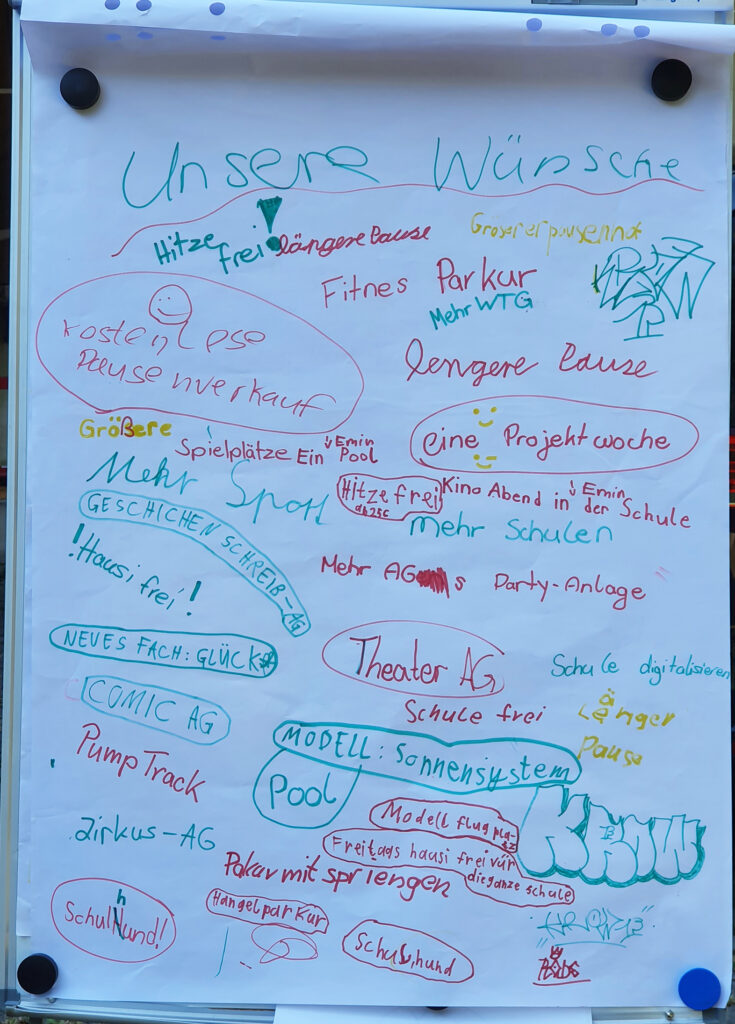 Unsere Wünsche
Hitze frei!
längere Pause
Grösererpausenhof
Fitnes Parkur
Mehr WTG
Kostenlose
Pausenverkauf
lengere Pause
Größere
Spielplätze
Ein ↓Emin Pool
eine Projektwoche
Mehr Sport
Hitzefrei
ab 25C
Kino Abend in ↓Emin der Schule
mehr Schulen
GESCHICHEN SCHREIB-AG
!Hausi frei!
Mehr AG s
Party-Anlage
NEUES FACH: GLÜCK
Theater AG
Schule digitalisieren
COMIC AG
Schule frei
Länger
Pause
PumpTrack
MODELL: Sonnensystem
Pool
Modellflugplatz
KRNW
Zirkus-AG
Freitags hausi frei vür
die ganze schule
Pakur mit spriengen
Schulhund!
Hangelparkur
Schulhund